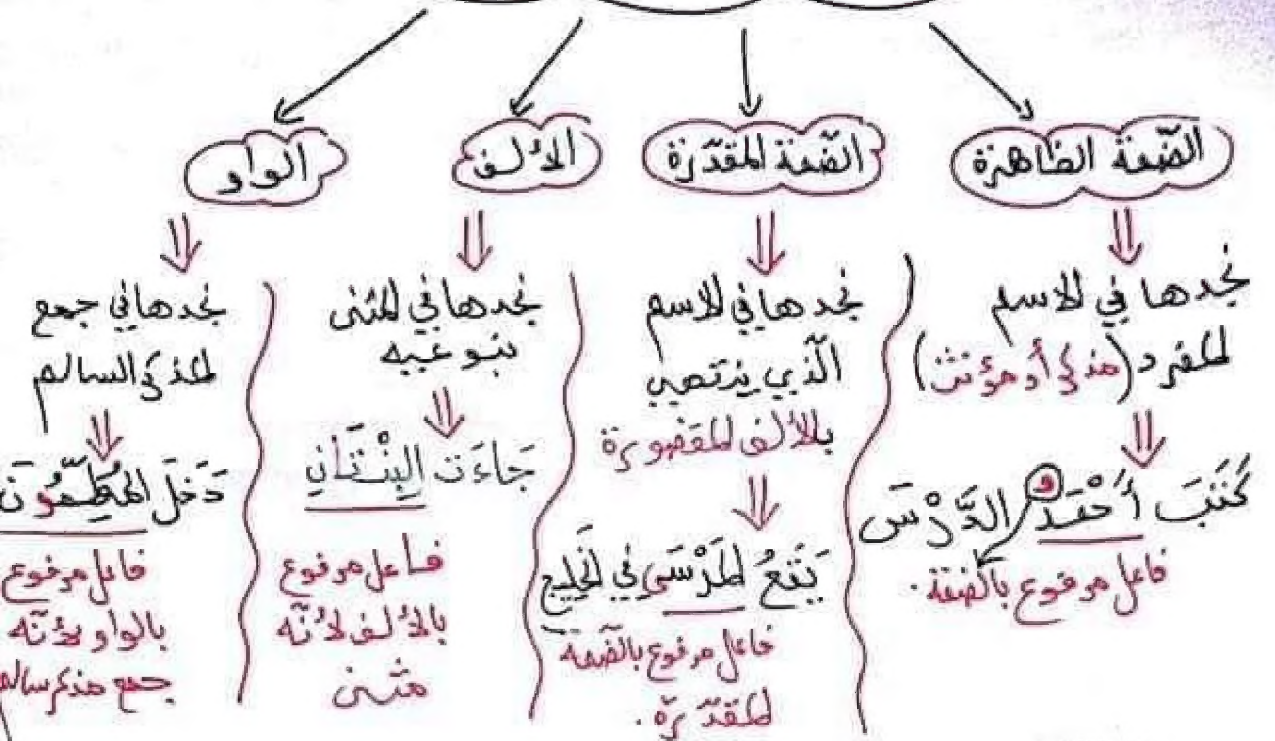 الضّمّة الظاهرة
نجدها في الاسم
المفرد (مذكر أو مؤنث)
كَتَبَ أَحْمَدُ الدَّرْسَ
فاعل مرفوع بالضمّة.
الضّمّة المقدّرة
نجدها في الاسم
الّذي ينتهي
بالألف المقصورة
يَقَعُ المَرْسَى في الخَليج
فاعل مرفوع بالضّمة
المقدّرة.
الألف
نجدها في المثنى
بنوعيه
جَاءَت البِنْتَانِ
فاعل مرفوع
بالألف لأنّه
مثنى
الواو
نجدها في جمع
المذكر السالم
دَخَلَ المُعَلِّمُونَ
فاعل مرفوع
بالواو لأنّه
جمع مذكر سالم